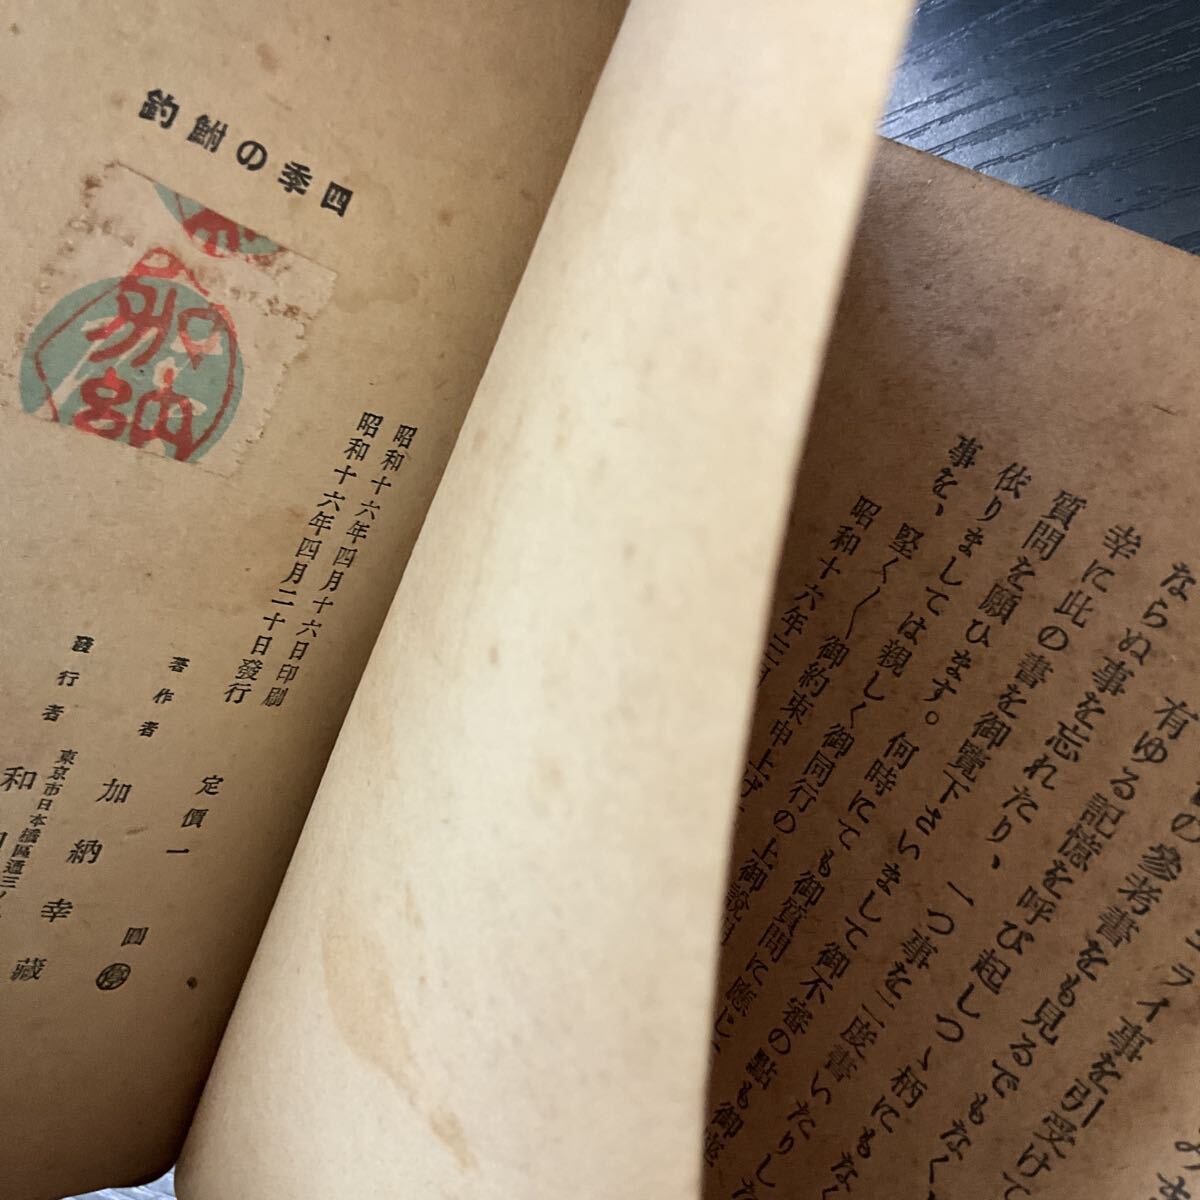 四季の鮒釣
加納
昭和十六年四月十六日印刷
昭和十六年四月二十日發行
定價一圓
停
著作者 加納幸藏
發行者
東京市日本橋區通三ノ
和
の參考書をも見るでもなく、
有ゆる記憶を呼び起しつゝ柄にもな
ならぬ事を忘れたり、一つ事を二度書いたりし
幸に此の書を御覽下さいまして御不審の點も御座
質問を願ひます。何時にても御質問に應じ
依りましては親しく御同行の上御說明
事を、堅く〱御約束申上げ
昭和十六年三月
ライ事を引受けて